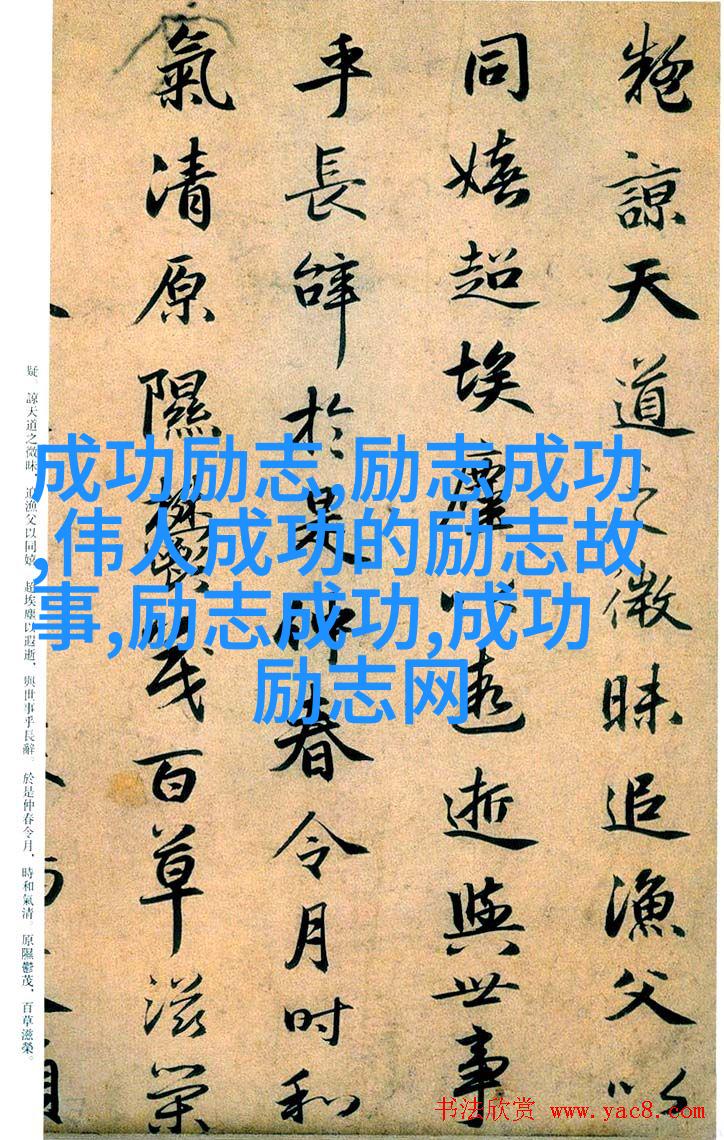 疑諒天道之微昧追漁父以
同嬉超埃塵以遐逝與世事
乎長辭於是仲春令月時和
氣清原隰鬱茂百草滋榮
疑。諒天道之微昧，追漁父以同嬉。超埃塵以遐逝，與世事乎長辭。於是仲春令月，時和氣清。原隰鬱茂，百草滋榮。
成功励志,励志成功
,伟人成功的励志故
事,励志成功,成功
励志网
书法欣赏 www.yac8.com